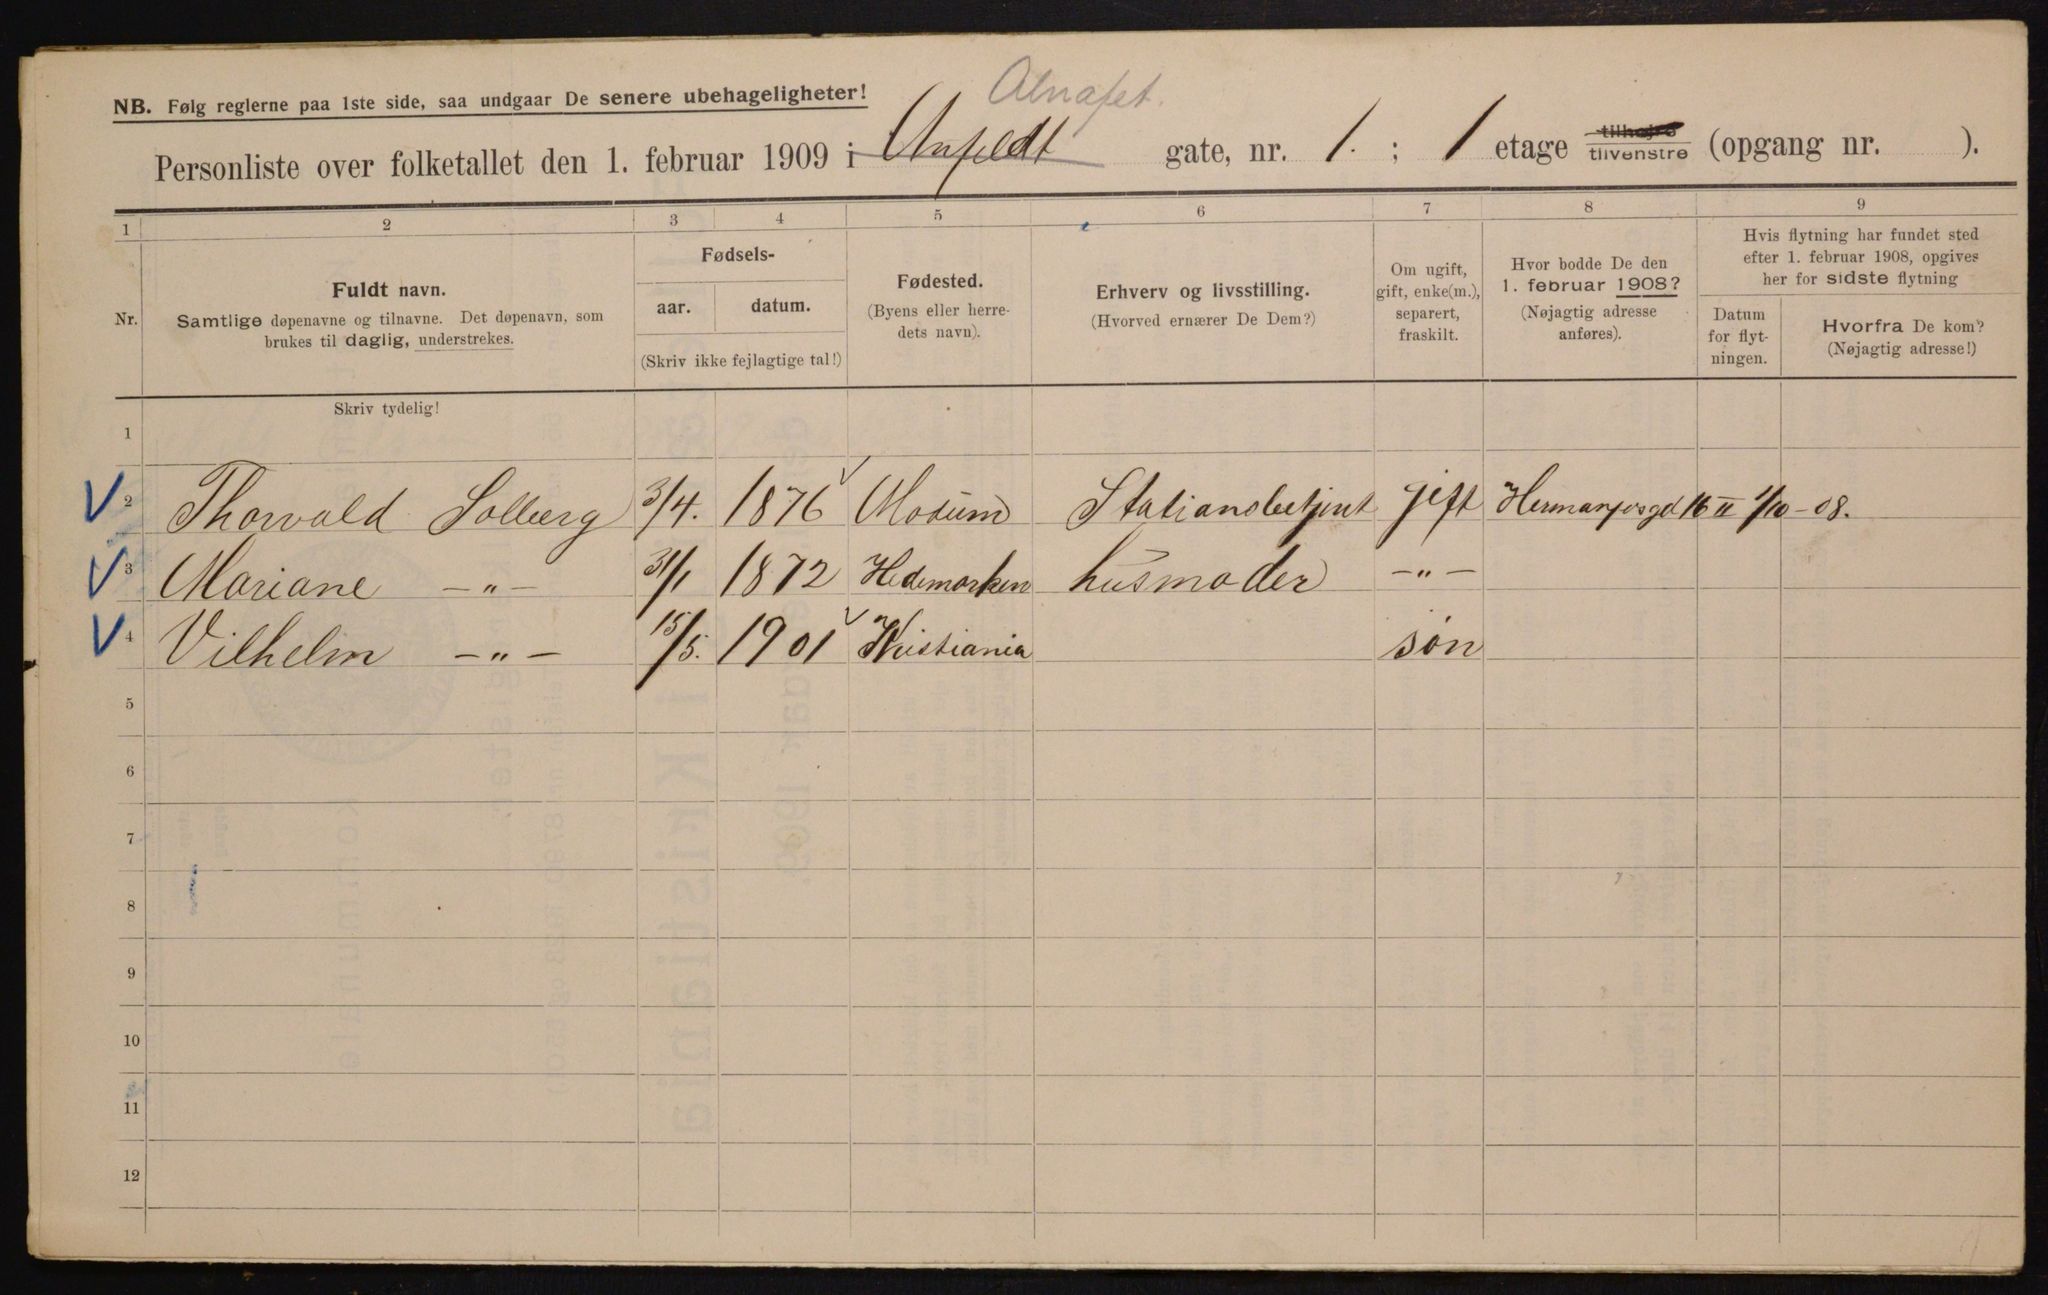 Alnafet.
NB. Følg reglerne paa 1ste side, saa undgaar De senere ubehageligheter!
Personliste over folketallet den 1. februar 1909 i Anfeldt gate, nr. 1. ; 1 etage tilhøjre tilvenstre (opgang nr. ).
1 2 3 4 5 6 7 8 9
Nr.
Fuldt navn.
Samtlige døpenavne og tilnavne. Det døpenavn, som
brukes til daglig, understrekes.
Fødsels-
aar. datum.
(Skriv ikke fejlagtige tal!)
Fødested.
(Byens eller herre-
dets navn).
Erhverv og livsstilling.
(Hvorved ernærer De Dem?)
Om ugift,
gift, enke(m.),
separert,
fraskilt.
Hvor bodde De den
1. februar 1908?
(Nøjagtig adresse
anføres).
Hvis flytning har fundet sted
efter 1. februar 1908, opgives
her for sidste flytning
Datum
for flyt-
ningen.
Hvorfra De kom?
(Nøjagtig adresse!)
Skriv tydelig!
1
2 Thorvald Solberg 3/4. 1876 Modum Stationsbetjent gift 16 II 1/10-08.
3 Mariane -"- 31/1 1872 Hedemarken husmoder -"-
4 Vilhelm -"- 15/5. 1901 Kristiania søn
5
6
7
8
9
10
11
12